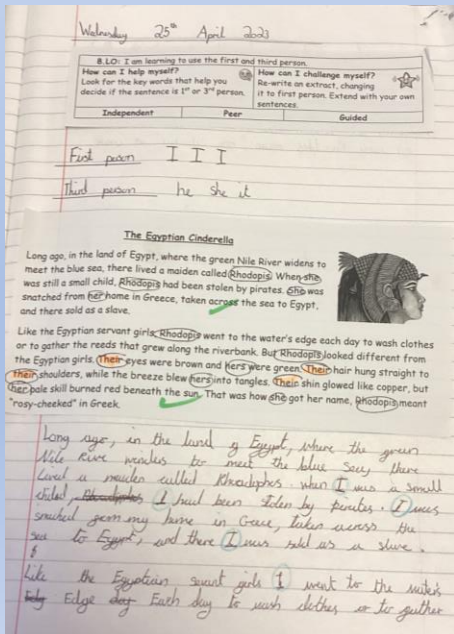 Wednesday 25th April 2023
8.LO: I am learning to use the first and third person.
How can I help myself?
Look for the key words that help you
decide if the sentence is 1st or 3rd person.
How can I challenge myself?
Re-write an extract, changing
it to first person. Extend with your own
sentences.
Independent Peer Guided
First person I I I
Third person he she it
The Egyptian Cinderella
Long ago, in the land of Egypt, where the green Nile River widens to
meet the blue sea, there lived a maiden called Rhodopis. When she
was still a small child, Rhodopis had been stolen by pirates. She was
snatched from her home in Greece, taken across the sea to Egypt,
and there sold as a slave.
Like the Egyptian servant girls, Rhodopis went to the water's edge each day to wash clothes
or to gather the reeds that grew along the riverbank. But Rhodopis looked different from
the Egyptian girls. Their eyes were brown and hers were green. Their hair hung straight to
their shoulders, while the breeze blew hers into tangles. Their shin glowed like copper, but
her pale skill burned red beneath the sun. That was how she got her name, Rhodopis meant
"rosy-cheeked" in Greek.
Long ago, in the land of Egypt, where the green
Nile River to meet the blue there
a maiden called when I was a small
I had been stolen by pirates. I was
from my home in taken across the
sea to Egypt, and there I was sold as a slave.
Like the Egyptian girls I went to the
Edge Each day to wash clothes or to gather